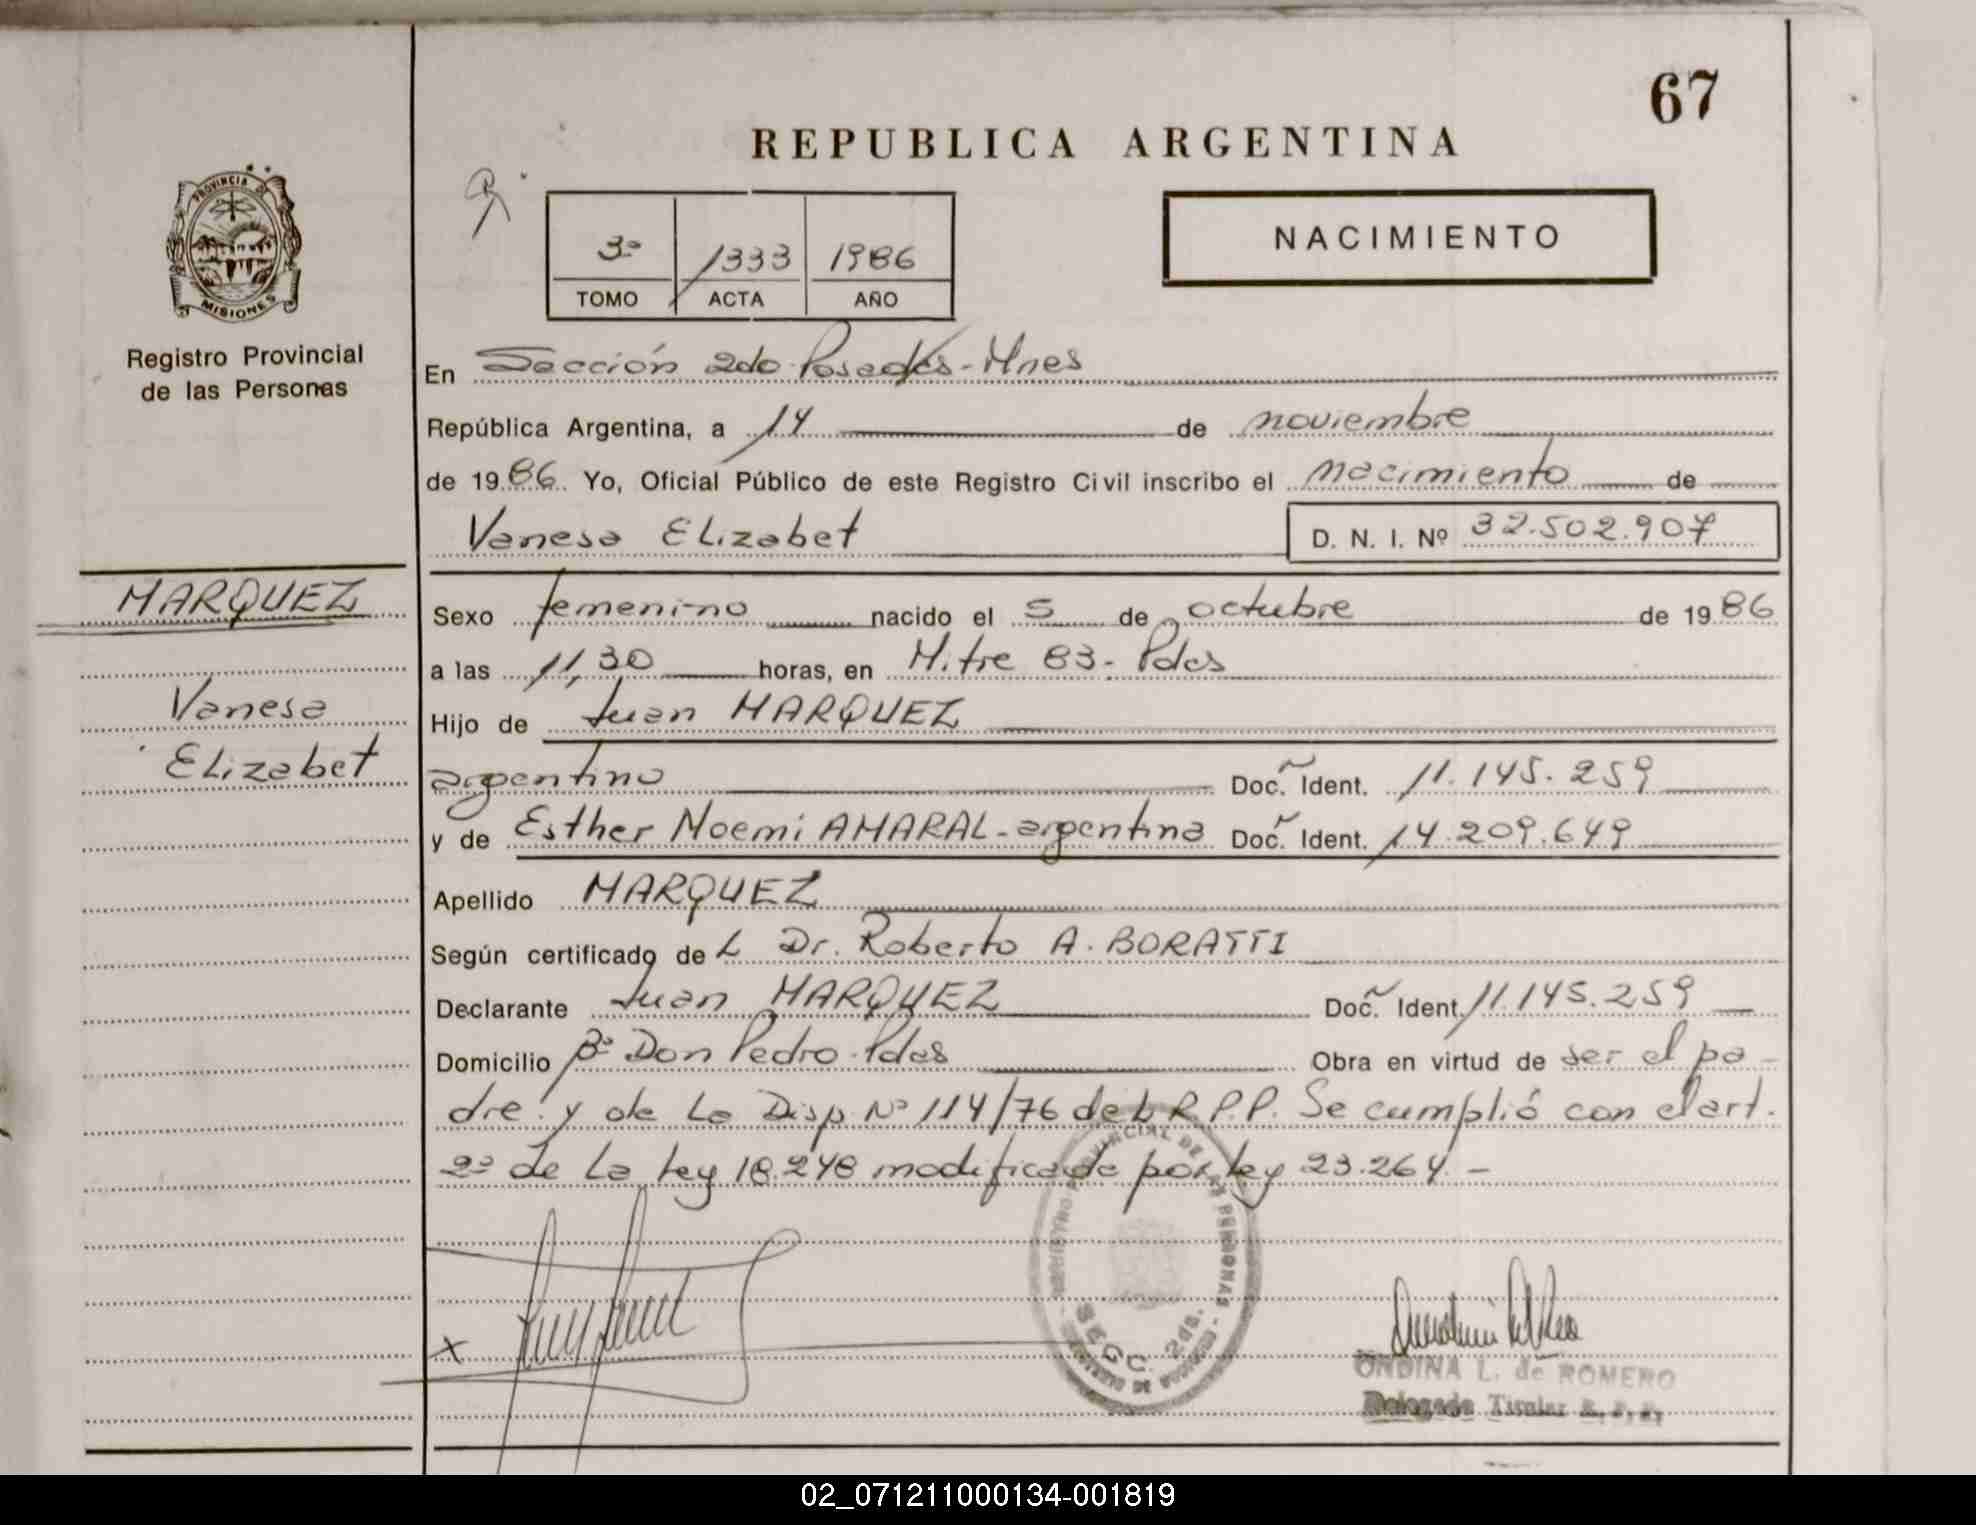 67
REPUBLICA ARGENTINA
PROVINCIA DE
MISIONES
Registro Provincial
de las Personas
3º 1333 1986
TOMO ACTA AÑO
NACIMIENTO
En Sección 2do Posadas - Mnes
República Argentina, a 14 de noviembre
de 1986. Yo, Oficial Público de este Registro Civil inscribo el nacimiento de
Vanesa Elizabet D. N. I. Nº 32.502.907
MARQUEZ
Vanesa
Elizabet
Sexo femenino nacido el 5 de octubre de 1986
a las 11,30 horas, en Mitre 83 - Pdas
Hijo de Juan MARQUEZ
argentino Doc. Ident. 11.145.259
y de Esther Noemi AMARAL - argentina Doc. Ident. 14.209.649
Apellido MARQUEZ
Según certificado de L Dr. Roberto A. BORATTI
Declarante Juan MARQUEZ Doc. Ident. 11.145.259
Domicilio Bº Don Pedro - Pdas Obra en virtud de ser el pa-
dre y de la Disp. Nº 114/76 de L R.P.P. Se cumplió con el art.
2º de la ley 18.248 modificada por ley 23.264. -
REGISTRO PROVINCIAL DE LAS PERSONAS
SECC. 2da.
x
ONDINA L. de ROMERO
Delegada Titular R. P. P.
02_071211000134-001819